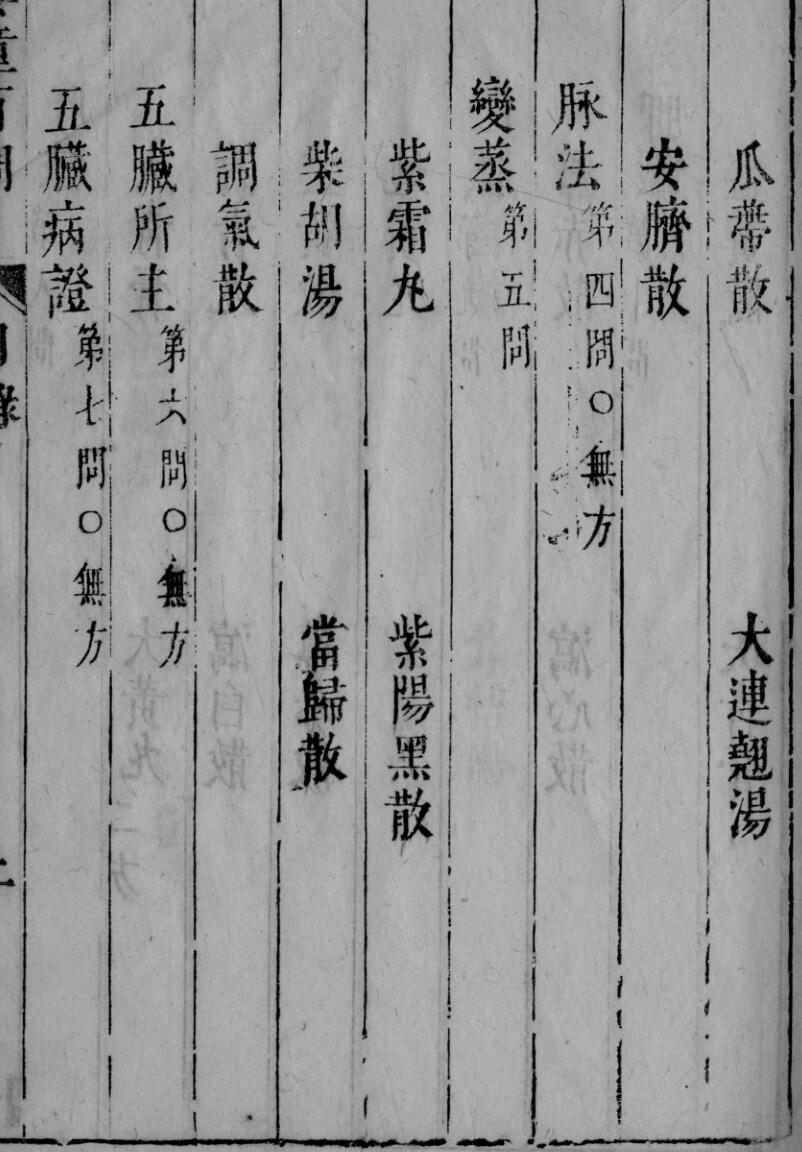 瓜蔕散 大連翹湯
安臍散
脉法 第四問○無方
變蒸 第五問
紫霜九 紫陽黑散
柴胡湯 當歸散
調氣散
五臟所主 第六問○無方
五臟病證 第七問○無方